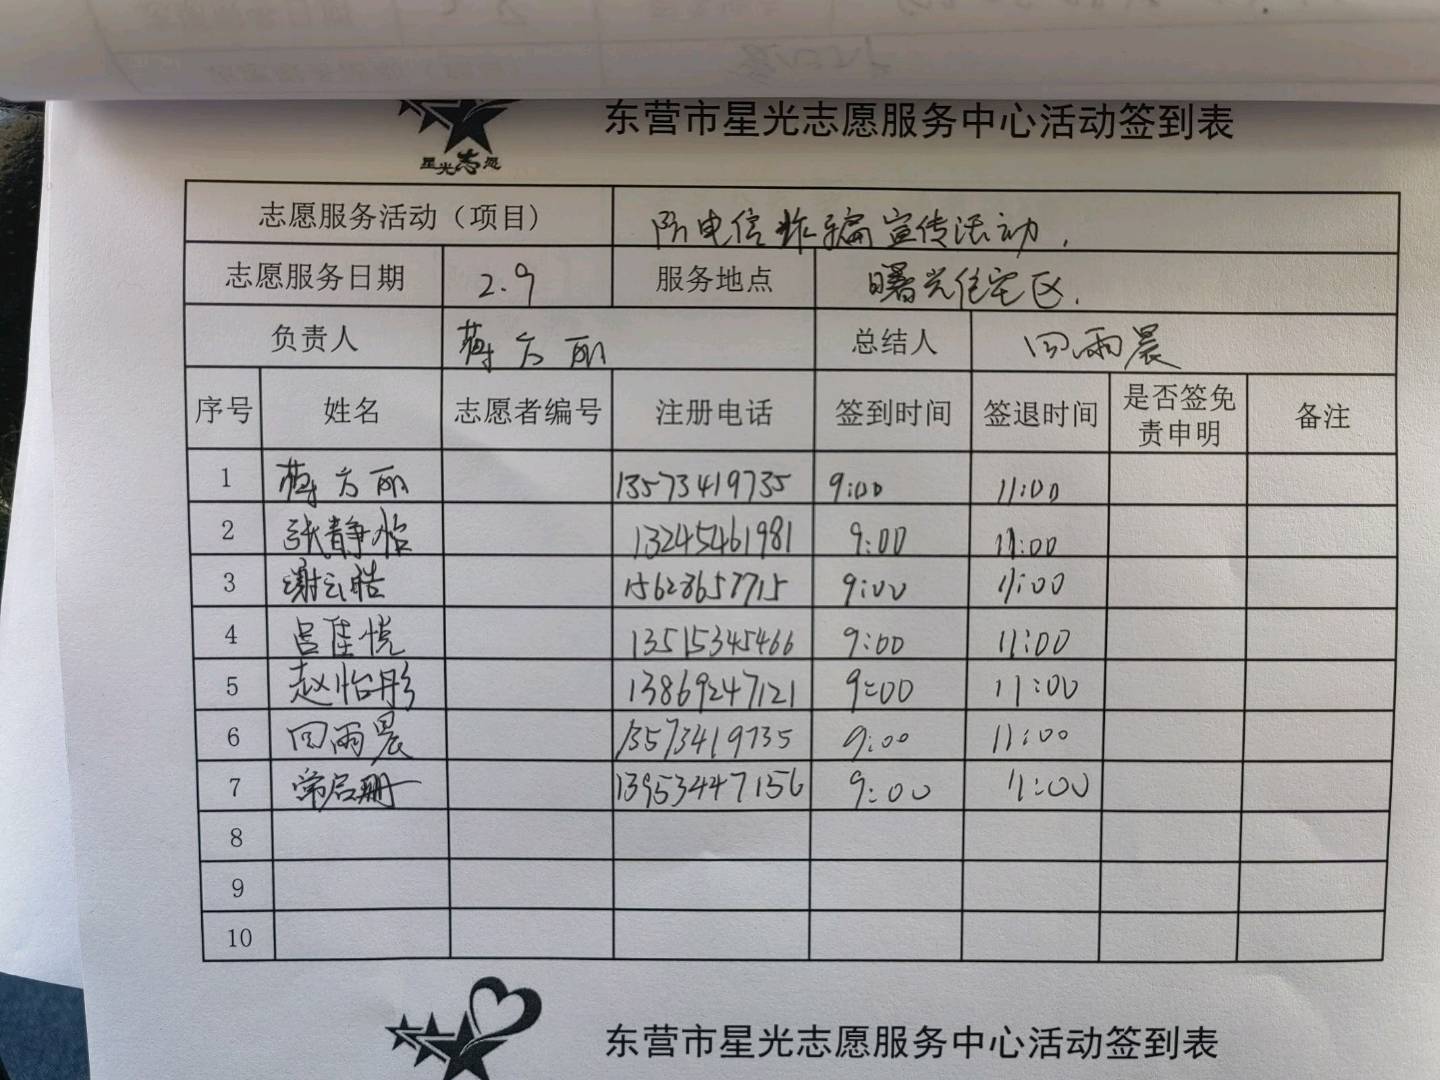 东营市星光志愿服务中心活动签到表
星光志愿
志愿服务活动（项目） 防电信诈骗宣传活动.
志愿服务日期 2.9 服务地点 曙光住宅区.
负责人 蒋方丽 总结人 回雨晨
序号 姓名 志愿者编号 注册电话 签到时间 签退时间 是否签免责申明 备注
1 蒋方丽 13573419735 9:00 11:00
2 张静怡 13245461981 9:00 11:00
3 谢云皓 15628657715 9:00 11:00
4 吕佳悦 13515345466 9:00 11:00
5 赵怡彤 13869247121 9:00 11:00
6 回雨晨 13573419735 9:00 11:00
7 13953447156 9:00 11:00
8
9
10
东营市星光志愿服务中心活动签到表